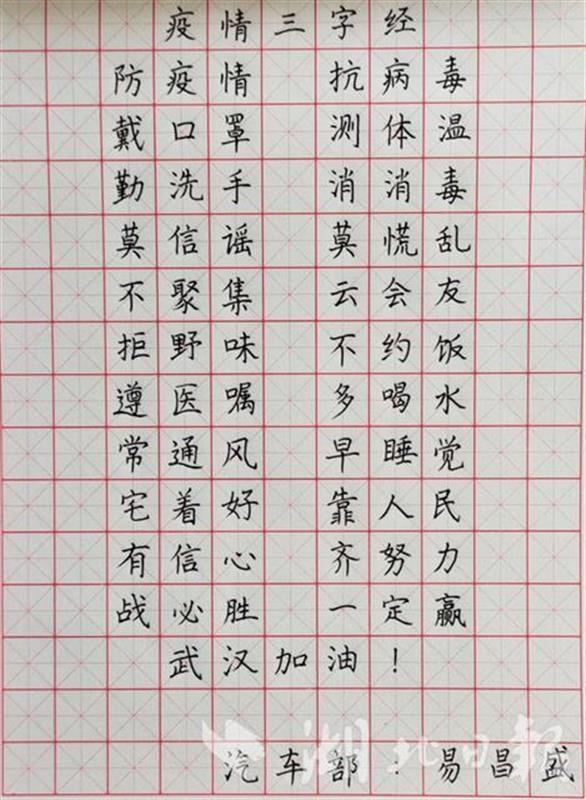 疫情三字经
防疫情 抗病毒
戴口罩 测体温
勤洗手 消消毒
莫信谣 莫慌乱
不聚集 云会友
拒野味 不约饭
遵医嘱 多喝水
常通风 早睡觉
宅着好 靠人民
有信心 齐努力
战必胜 一定赢
武汉加油!
汽车部:易昌盛
湖北日报